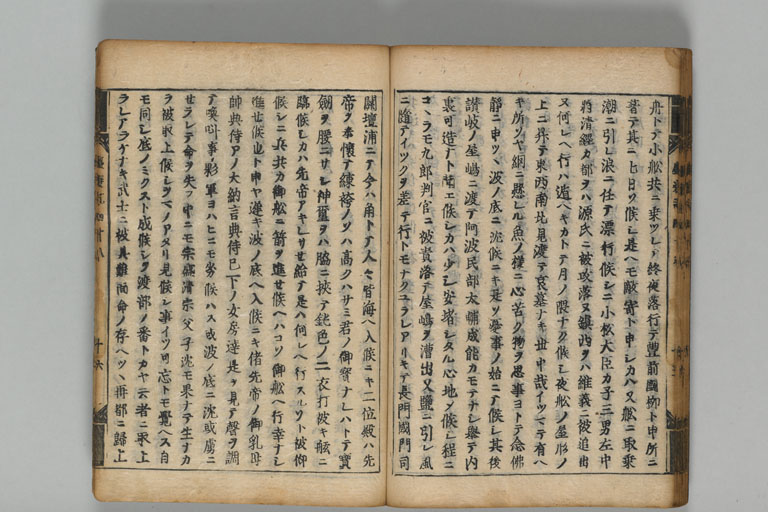 舟トテ小舩共ニ乗ツレテ終夜落行テ豊前國柳ト申所ニ
著テ其ニ七日ヲ候シ是ヘモ敵寄ト申シカハ又舩ニ取乗
潮ニ引レ浪ニ任テ漂行候シニ小松大臣カ子三男左中
将清經カ都ヲハ源氏ニ被攻落又鎮西ヲハ維義ニ被追出
又何レヘ行ハ遁ヘキカトテ月ノ隈ナク候シ夜舩ノ屋形ノ
上ニ昇テ東西南北見渡テ哀墓ナキ世中哉イツマテ有ヘ
キ所ソヤ網ニ懸レル魚ノ様ニ心苦ク物ヲ思事ヨトテ念佛
静ニ申ツヽ波ノ底ニ沈候ニキ是ソ憂事ノ始ニテ候シ其後
讃岐ノ屋嶋ニ渡テ阿波民部太輔成能カモテナシ舉テ内
裏可造ナト聞エ候シカハ少シ安堵シタル心地ノ候シ程ニ
コヽラモ九郎判官ニ被責落テ屋嶋ヲ漕出又鹽ニ引レ風
ニ隨テイツクヲ差テ行トモナクユラレアリキテ長門國門司
關壇浦ニテ今ハ角トテ人々皆海ヘ入候ニキ二位殿ハ先
帝ヲ奉懐テ練袴ノソハ高クハサミ君ノ御寳ナレハトテ寳
劔ヲ腰ニサシ神璽ヲハ脇ニ挾テ鈍色ノ二衣打被キ舷ニ
臨候シカハ先帝アキレサセ給テ是ハ何レヘ行スルソト被仰
候シニ兵共カ御舩ニ箭ヲ進セ候ヘハコソ御舩ヘ行幸ナシ
進セ候ヘト申ヤ遅キ波ノ底ヘ入候ニキ偖先帝ノ御乳母
帥典侍アノ大納言典侍已下ノ女房達是ヲ見テ聲ヲ調
テ喚叫事ハ軍ヨハヒニモ劣候ハス或波ノ底ニ沈或虜ニ
セラレテ命ヲ失フ中ニモ宗盛清宗父子沈モ果ナテ生ナカ
ラ被取上候シヲマノアタリ見候シ事イツ可忘トモ覺ヘス自
モ同シ底ノミクスト成候シヲ渡部ノ番トカヤ云者ニ取上
ラレテアラケナキ武士ニ被具難面命ノ存ヘツヽ再都ニ歸上
十六